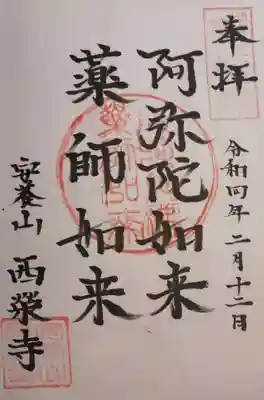 奉拝
令和四年 二月十二日
阿弥陀如来
薬師如来
安養山 西栄寺